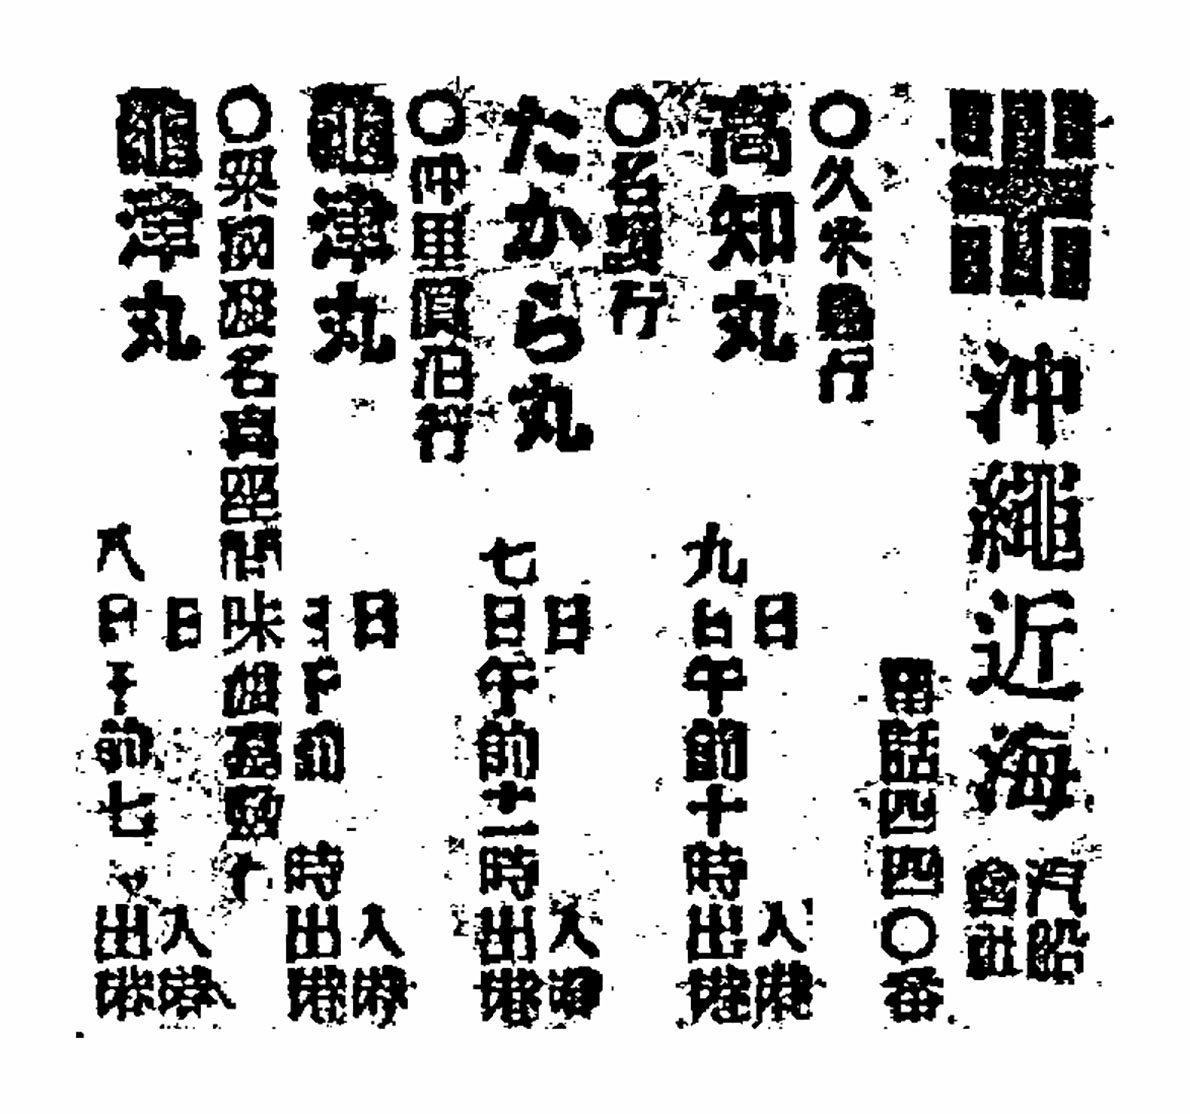 沖繩近海汽船會社
電話四四〇番
〇久米島行
高知丸
日入港
九日午前十時出港
〇名護行
たから丸
日入港
七日午前十一時出港
〇仲里眞泊行
龜津丸
日入港
日午前 時出港
〇粟國渡名喜座間味慶良間行
龜津丸
日入港
八日午前七時出港